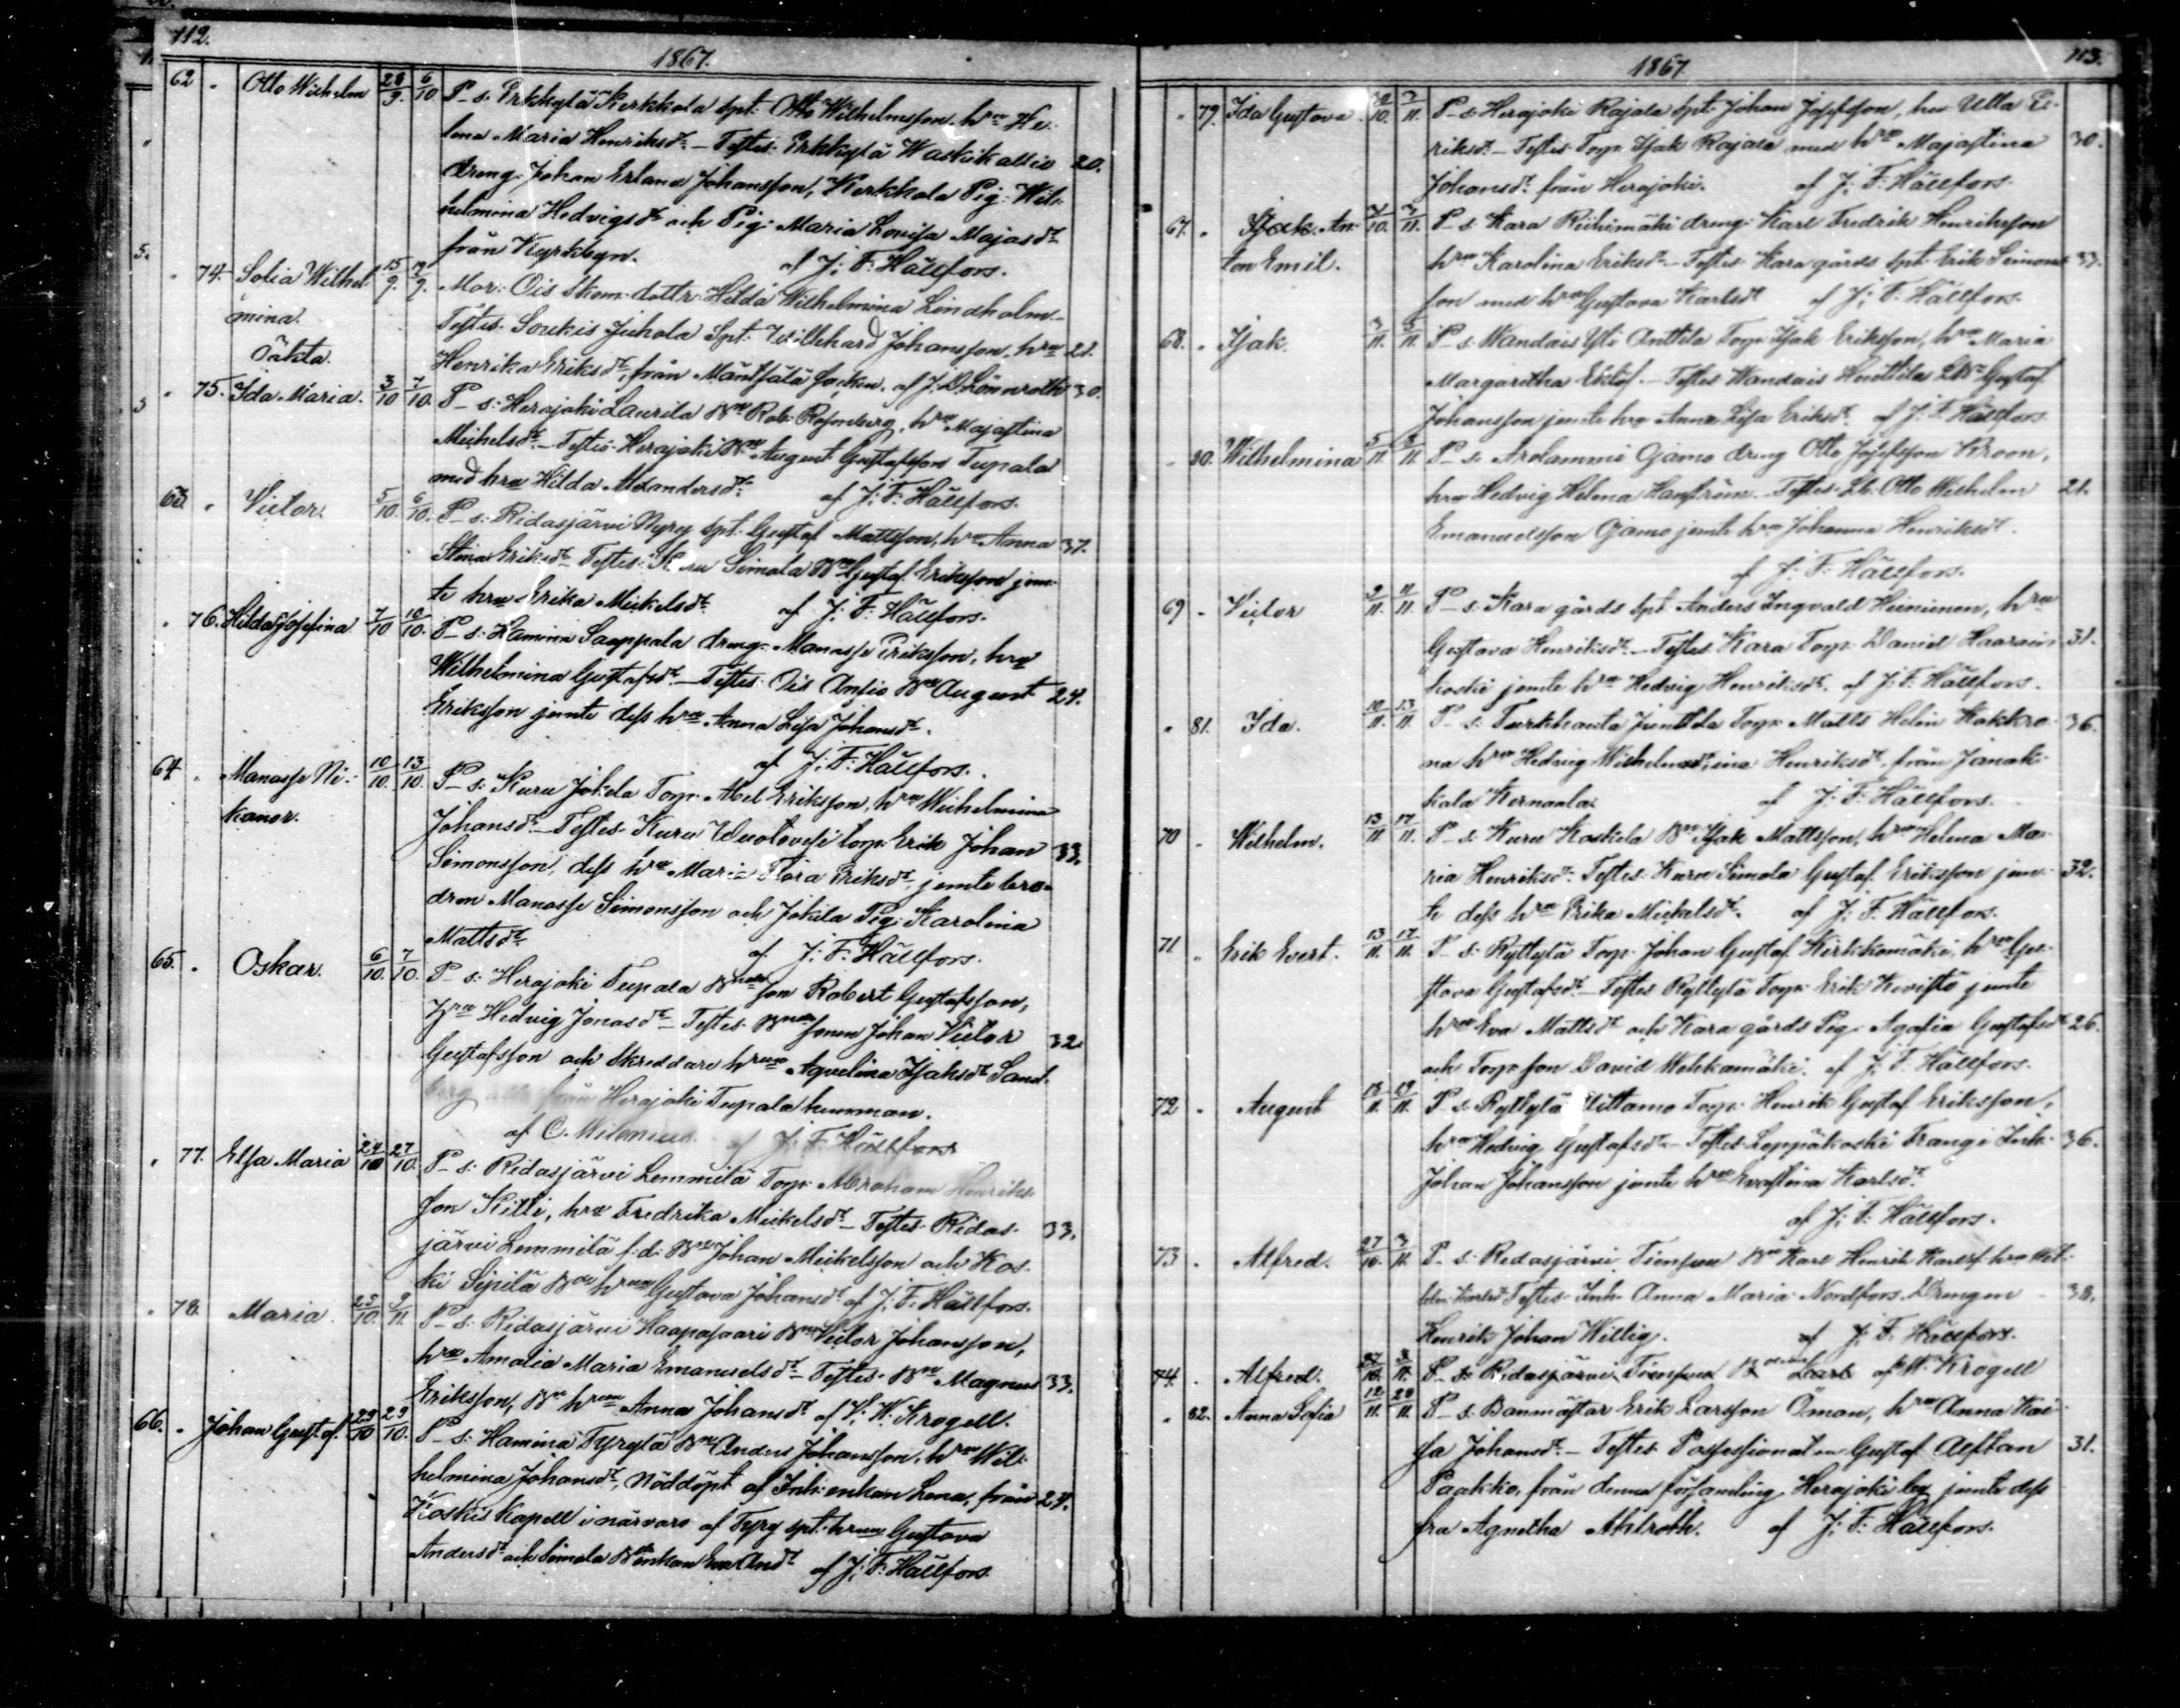 112.
1867.
62 " Otto Wilhelm 28/9. 6/10 P-s: Erkkylä Kerkkola Spt. Otto Wilhelmsson, hru He-
lena Maria Henriksdr – Testes: Erkkylä Waskikallio 20.
dreng Johan Erland Johansson, Kerkkola Pig: Wil-
helmina Hedvigsdr och Pig: Maria Lovisa Majasdr
från Kyrkbyn. af J: F: Hällfors.
" 74. Sofia Wilhel- 15/9. 19/9. Mor: Ois Skom: dottr: Hilda Wilhelmina Lindholm.–
mina. Testes: Soukis Juhola Spt: Willehard Johansson, hru 21.
Oäkta. Henrika Eriksdr, från Mäntsälä Socken. af J. D. Lönnroth
" 75. Ida Maria. 3/10 7/10. P-s: Herajoki Laurila Bn Rob: Rosenberg, hru Majastina 30.
Michelsdr – Testes: Herajoki Bn August Gustafsson Tupala
med hru Hilda Alexandersdr. af J: F: Hällfors.
63. " Victor. 5/10. 6/10. P-s: Ridasjärvi Nyry Spt. Gustaf Mattsson, hru Anna 37.
Stina Eriksdr Testes: Kuru Simola Bn Gustaf Eriksson jem-
te hru Erika Mickelsdr. af J: F: Hällfors.
" 76. Hilda Josefina 7/10 10/10. P-s: Hamina Sappala dreng Manasse Eriksson, hru
Wilhelmina Gustafsdr – Testes: Ois Ansio Bn August 24.
Eriksson jemte dess hru Anna Lisa Johansdr.
af J: F: Hällfors.
64. " Manasse Ni- 10/10. 13/10. P-s: Kuru Jokela Torp: Abel Eriksson, hru Wilhelmina
kanor. Johansdr – Testes: Kuru Wuolovesi torp: Erik Johan 33.
Simonsson, dess hru Maria Flora Eriksdr, jemte bro-
dren Manasse Simonsson och Jokela Pig: Karolina
Mattsdr. af J: F: Hällfors.
65. " Oskar. 6/10. 7/10. P-s: Herajoki Tupala son Robert Gustafsson,
hru Hedvig Jonasdr – Testes: sonen Johan Victor 32.
Gustafsson och Skreddare hrun Aqvelina Isaksdr Sand-
berg från Herajoki Tupala hemman.
af C. Milenius. af J: F: Hällfors
" 77. Elsa Maria 24/10 27/10. P-s: Ridasjärvi Lemmilä Torp: Abraham Henriks-
son Kilti, hru Fredrika Mickelsdr – Testes: Ridas- 33.
järvi Lemmilä f: d: Bn Johan Mickelsson och Kos-
ki Sipilä Bde hrun Gustava Johansdr af J: F: Hällfors.
" 78. Maria. 25/10. 9/11. P-s: Ridasjärvi Haapasaari Bn Victor Johansson,
hru Amalia Maria Emanuelsdr – Testes: Bn Magnus 33.
Eriksson, Bn hrun Anna Johansdr af W: Krogell.
66. " Johan Gustaf. 29/10 29/10. P-s: Hamina Tyrylä Bn Anders Johansson, hru Wil-
helmina Johansdr, Nöddöpt af Inh: enkan Lena, från 24.
Koskis Kapell i närvaro af Tyry Spt: hrun Gustava
Andersdr och Simola Bde enkan Eva Andr af J: F: Hällfors
1867
113.
" 79. Ida Gustava 30/10. 3/11. P-s: Herajoki Rajala Spt: Johan Josefsson, hru Ulla Ei-
riksdr – Testes: Torp: Isak Rajala med hru Majastina 30.
Johansdr. från Herajoki. af J: F: Hällfors.
67. " Isak An- 31/10. 3/11. P-s: Kara Riihimäki dreng: Karl Fredrik Henriksson
ton Emil. hru Karolina Eriksdr – Testes: Kara gårds Spt: Erik Simons- 33.
son med hru Gustava Karlsdr af J: F: Hällfors.
68. " Isak. 3/11. 5/11. P-s: Wandais Yli Anttila Torp: Isak Eriksson, hru Maria
Margaretha Eklöf. – Testes: Wandais Huttila Gustaf
Johansson jemte hru Anna Lisa Eriksdr. af J: F: Hällfors.
" 80. Wilhelmina 5/11. 8/11. P-s: Arolammi Ojamo dreng Otto Josefsson Kroon,
hru Hedvig Helena Hagström. – Testes: Otto Wilhelm 21.
Emanuelsson Ojamo jemte hru Johanna Henriksdr.
af J: F: Hällfors.
69 " Victor 9/11. 11/11. P-s: Kara gårds Spt. Anders Ingvald Heinonen, hru
Gustava Henriksdr. – Testes: Kara Torp: Daniel Haarain- 31.
koski jemte hru Hedvig Henriksdr. af J: F: Hällfors.
" 81. Ida. 10/11. 13/11. P-s: Turkhauta Junttila Torp: Matts Helin Kokko- 36.
na hru Hedvig Wilhelmina Henriksdr. från Janak-
kala Kernaala. af J: F: Hällfors.
70 " Wilhelm. 13/11 17/11. P-s: Kuru Koskela Bn Isak Mattsson, hru Helena Ma-
ria Henriksdr. Testes: Kuru Simola Gustaf Eriksson jem- 32.
te dess hru Erika Mickelsdr. af J: F: Hällfors.
71 " Erik Evert. 13/11. 17/11. P-s: Ryttylä Torp: Johan Gustaf Kirkkomäki, hru Gu-
stava Gustafsdr. – Testes: Ryttylä Torp: Erik Kivistö jemte
hru Eva Mattsdr och Kara gårds Pig: Agafia Gustafsdr 26.
och Torp: son David Wehkamäki. af J: F: Hällfors.
72 " August 18/11. 19/11. P-s: Ryttylä Uittamo Torp: Henrik Gustaf Eriksson,
hru Hedvig Gustafsdr – Testes: Leppäkoski Frangi Inh: 36.
Johan Johansson jemte hru Evastina Karlsdr.
af J: F: Hällfors.
73 " Alfred. 27/10. 3/11. P-s: Ridasjärvi Bn Karl Henrik Karlss: hru Wil-
helm: Karlsdr Testes: Inh: Anna Maria Nordfors. Drengen 38.
Henrik Johan Willig. af J: F: Hällfors.
74. " Alfred. 27/10. 3/11. P-s: Ridasjärvi af W: Krogell
" 82. Anna Sofia 12/11. 20/11. P-s: Banmästar Erik Larsson Öman, hru Anna Kai-
sa Johansdr. – Testes: Possessionaten Gustaf Aeftan 31.
Paakko, från denna församling Herajoki by jemte dess
fru Agnetha Ahlroth. af J: F: Hällfors.